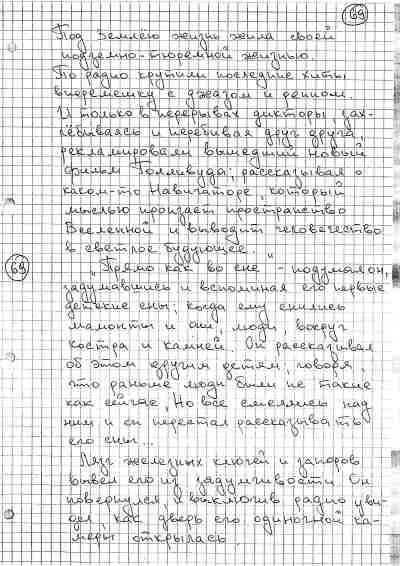 69
Под землею жизнь жила своей
подземно-тюремной жизнью.
По радио крутили последние хиты
вперемешку с джазом и репом.
И только в перерывах дикторы, зах-
лебываясь и перебивая друг друга,
рекламировали вышедший новый
фильм Голливуда; рассказывая о
каком-то Навигаторе, который
мыслью пронзает пространство
Вселенной и выводит человечество
в светлое будующее.
69
„Прямо как во сне" - подумал он,
задумавшись и вспоминая его первые
детские сны; когда ему снились
мамонты и они, люди, вокруг
костра и камней. Он рассказывал
об этом другим детям, говоря,
что раньше люди были не такие
как сейчас, Но все смеялись над
ним и он перестал рассказывать
его сны...
Лязг железных ключей и запоров
вывел его из задумчивости. Он
повернулся, и выключив радио уви-
дел, как дверь его одиночной ка-
меры открылась.